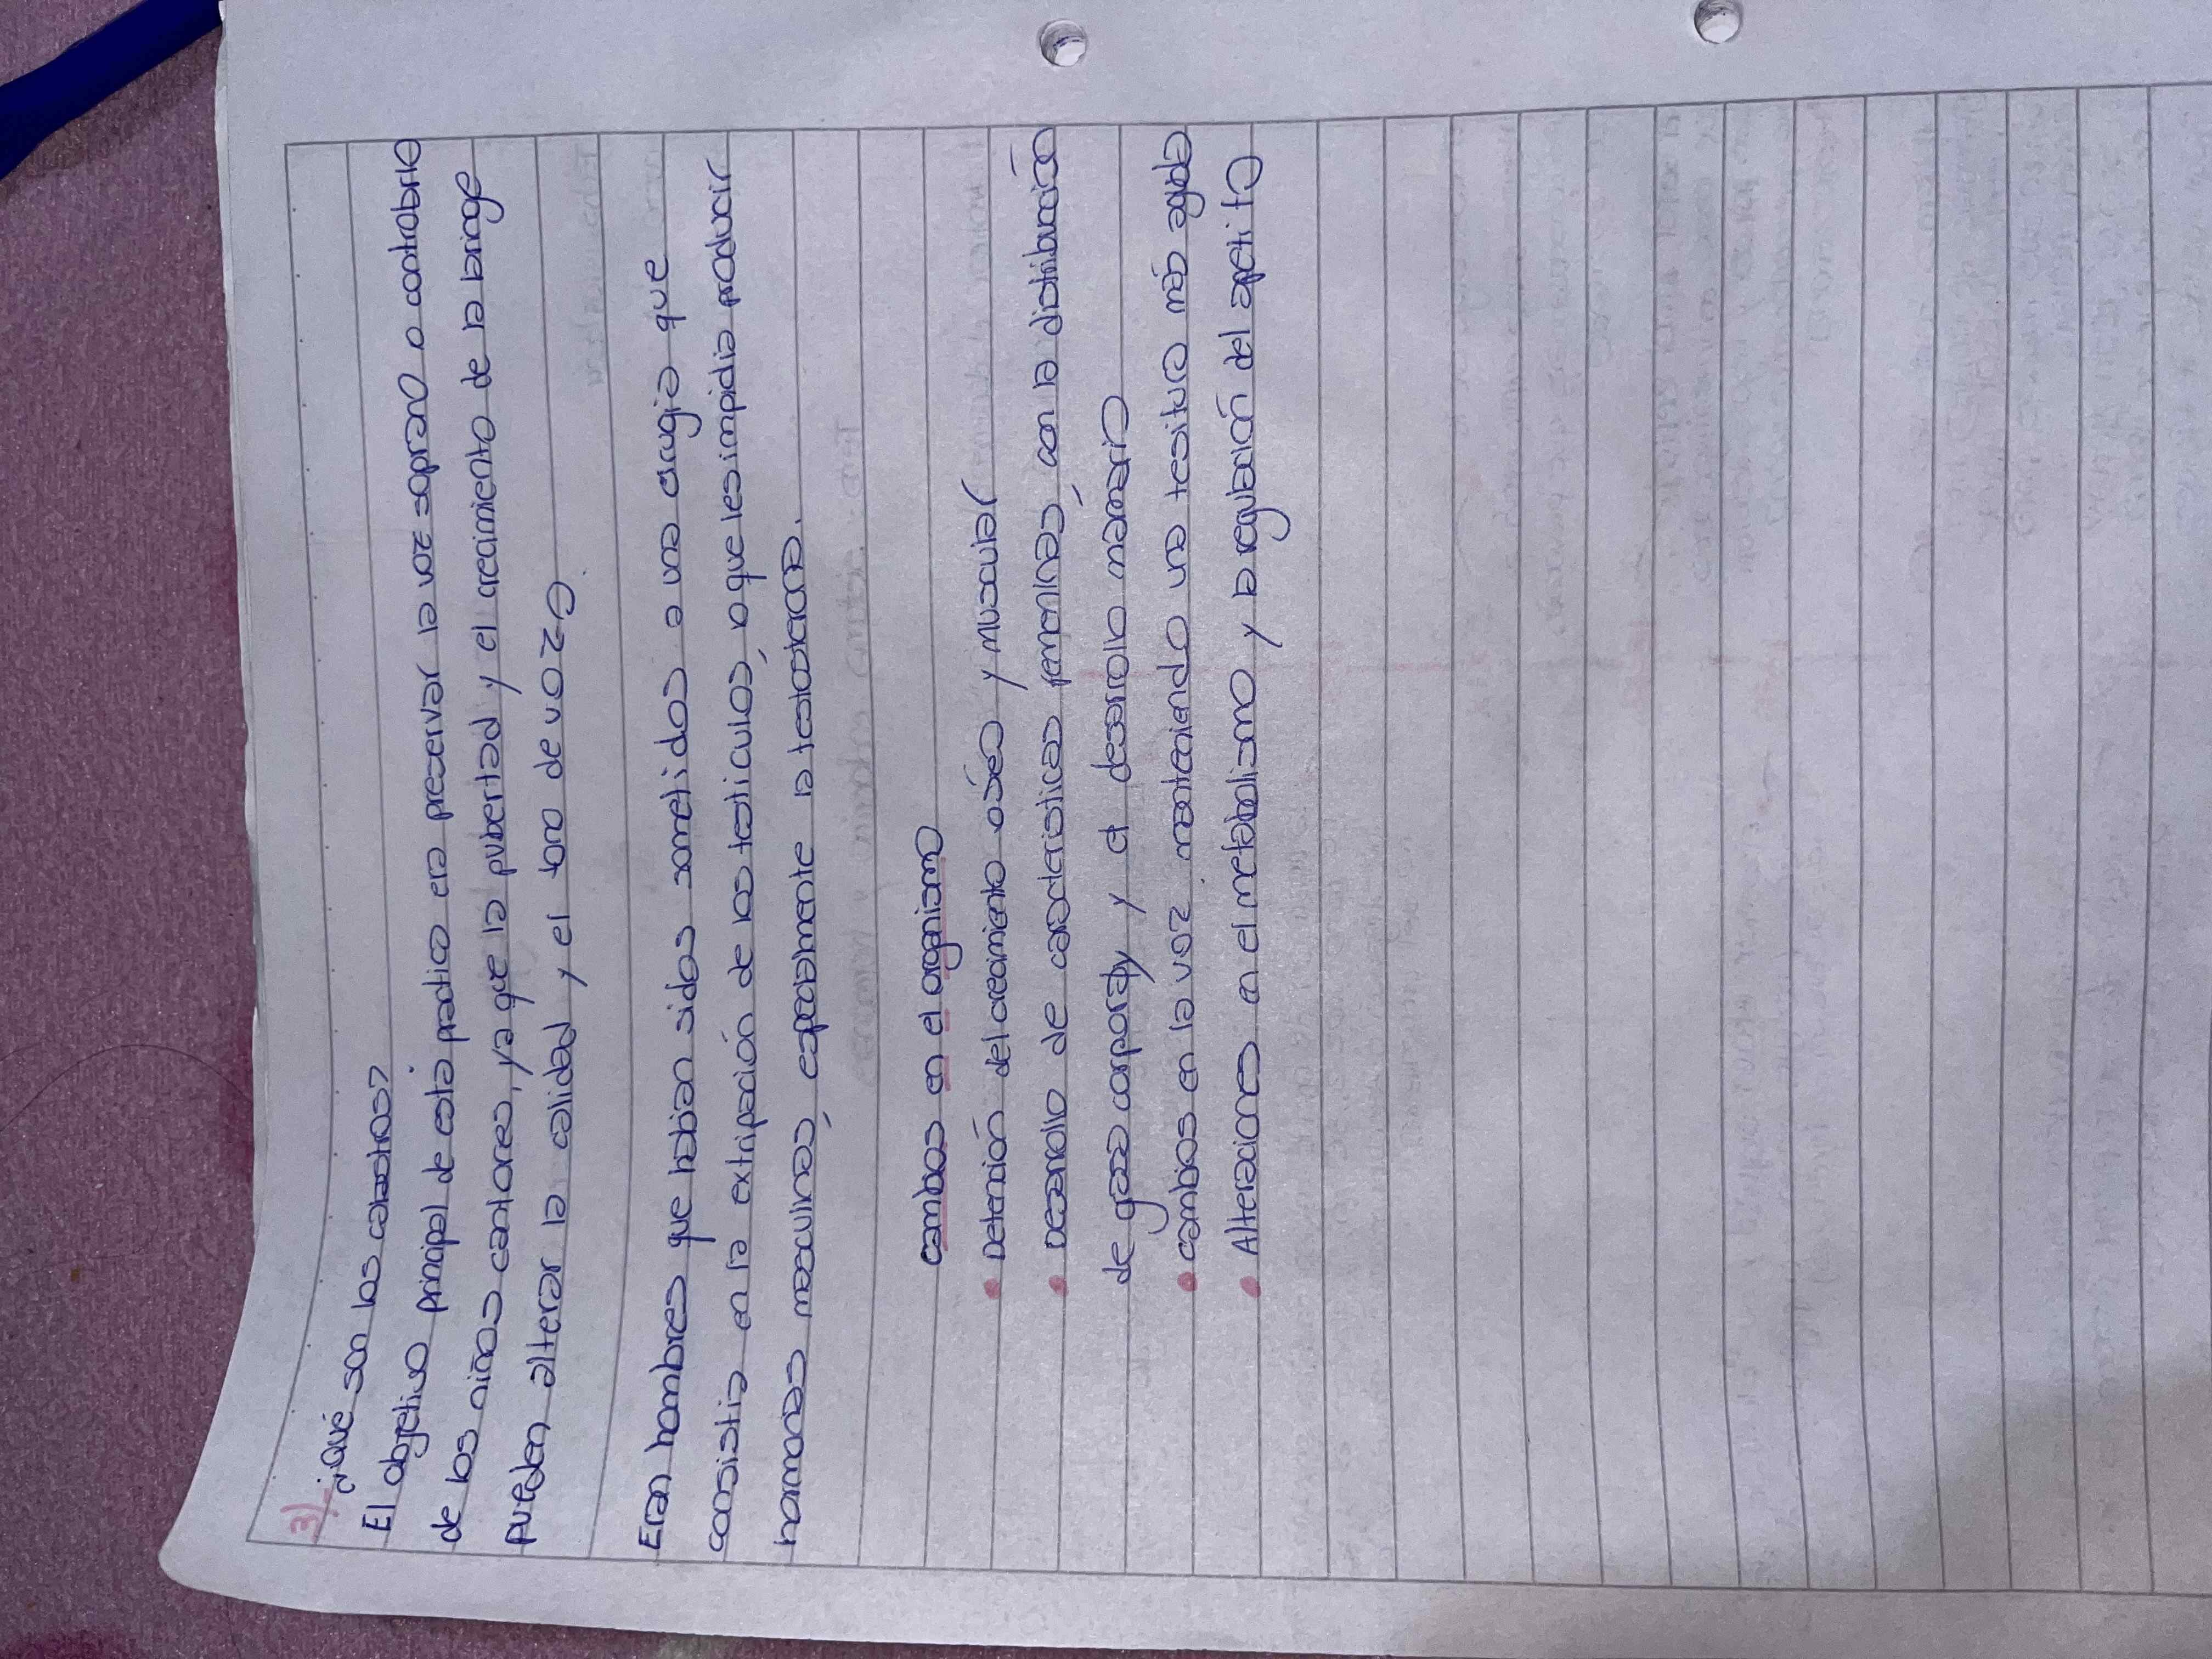 3)- ¿Qué son los catastros?
El objetivo principal de está práctica era preservar la voz soprano o contrabrio
de los niños cantores, ya que la pubertad y el crecimiento de la laringe
pueden alterar la calidad y el tono de voz.
Eran hombres que habían sidos sometidos a una cirugía que
consistía en la extirpación de los testículos, o que les impidia producir
hormonas masculinas, especialmente la testosterona.
cambios en el organismo
• Detención del crecimiento oséo y muscular
• Desarrollo de características femeninas, con la distribución
de grasa corporal y el desarrollo mamario
• cambios en la voz, manteniendo una tesitura más aguda
• Alteraciones en el metabolismo y la regulación del apetito